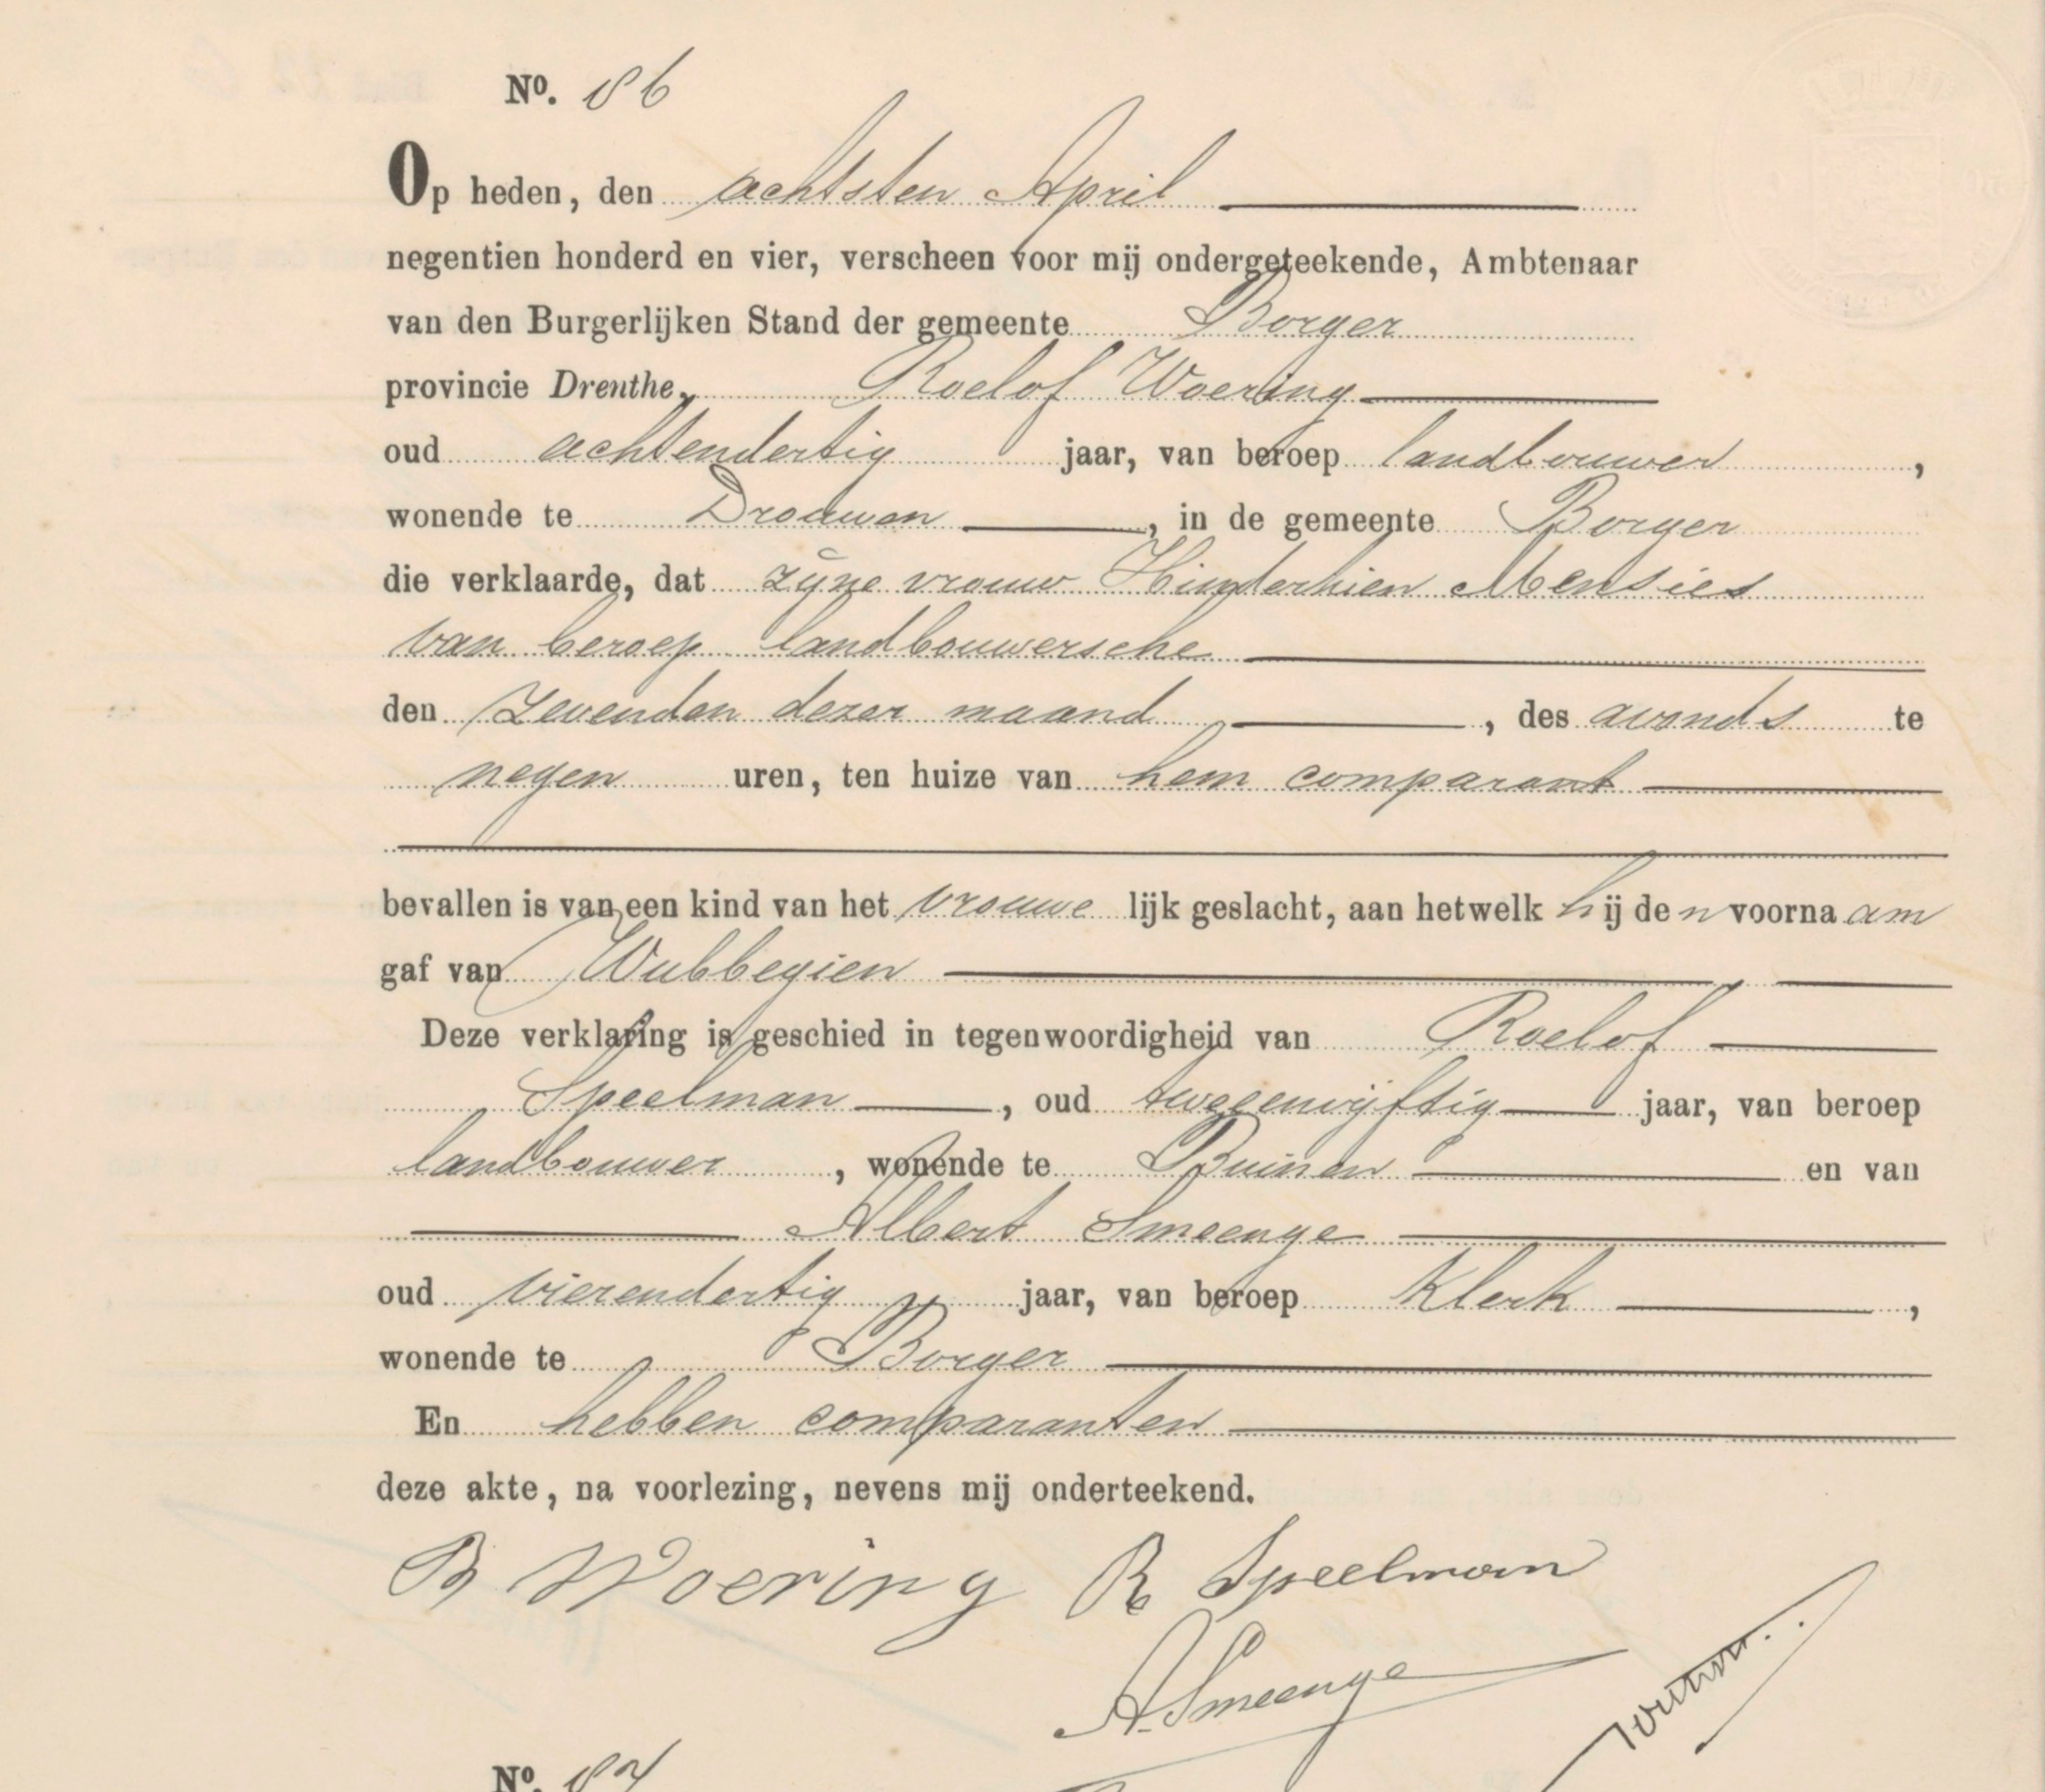 No. 86
Op heden, den achtsten April
negentien honderd en vier, verscheen voor mij ondergeteekende, Ambtenaar
van den Burgerlijken Stand der gemeente Borger
provincie Drenthe, Roelof Woering
oud achtendertig jaar, van beroep landbouwer,
wonende te Drouwen, in de gemeente Borger
die verklaarde, dat zijne vrouw Hinderkien Mensies
van beroep landbouwersche
den zevenden dezer maand, des avonds te
negen uren, ten huize van hem comparant
bevallen is van een kind van het vrouwelijk geslacht, aan hetwelk hij den voornaam
gaf van Wubbegien
Deze verklaring is geschied in tegenwoordigheid van Roelof
Speelman, oud tweeenvijftig jaar, van beroep
landbouwer, wonende te Buinen en van
Albert Smeenge
oud vierendertig jaar, van beroep klerk,
wonende te Borger
En hebben comparanten
deze akte, na voorlezing, nevens mij onderteekend.
R Woering R Speelman
A. Smeenge
No. 87